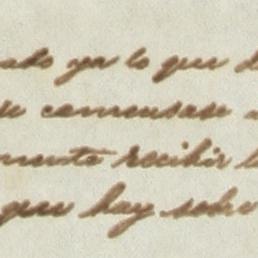 ado ya lo que d
se comensase a
mente recibir l
que hay sobre